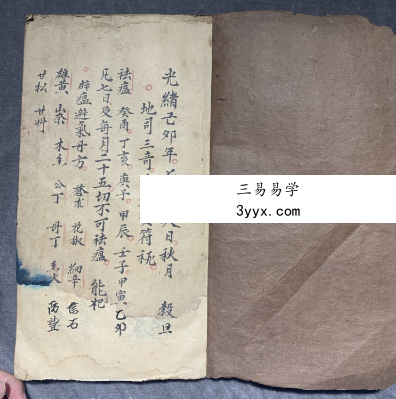 光緒己卯年 八日秋月 穀旦
地司三奇 符秘
祛瘟 癸酉 丁亥 庚子 甲辰 壬子 甲寅 乙卯
凡七日及每月二十五切不可祛瘟 能祀
辟瘟避氣丹方 蒼术 花椒 細辛 信石
雄黃 山柰 木香 公丁 母丁
甘松 甘艸
三易易学
3yyx.com